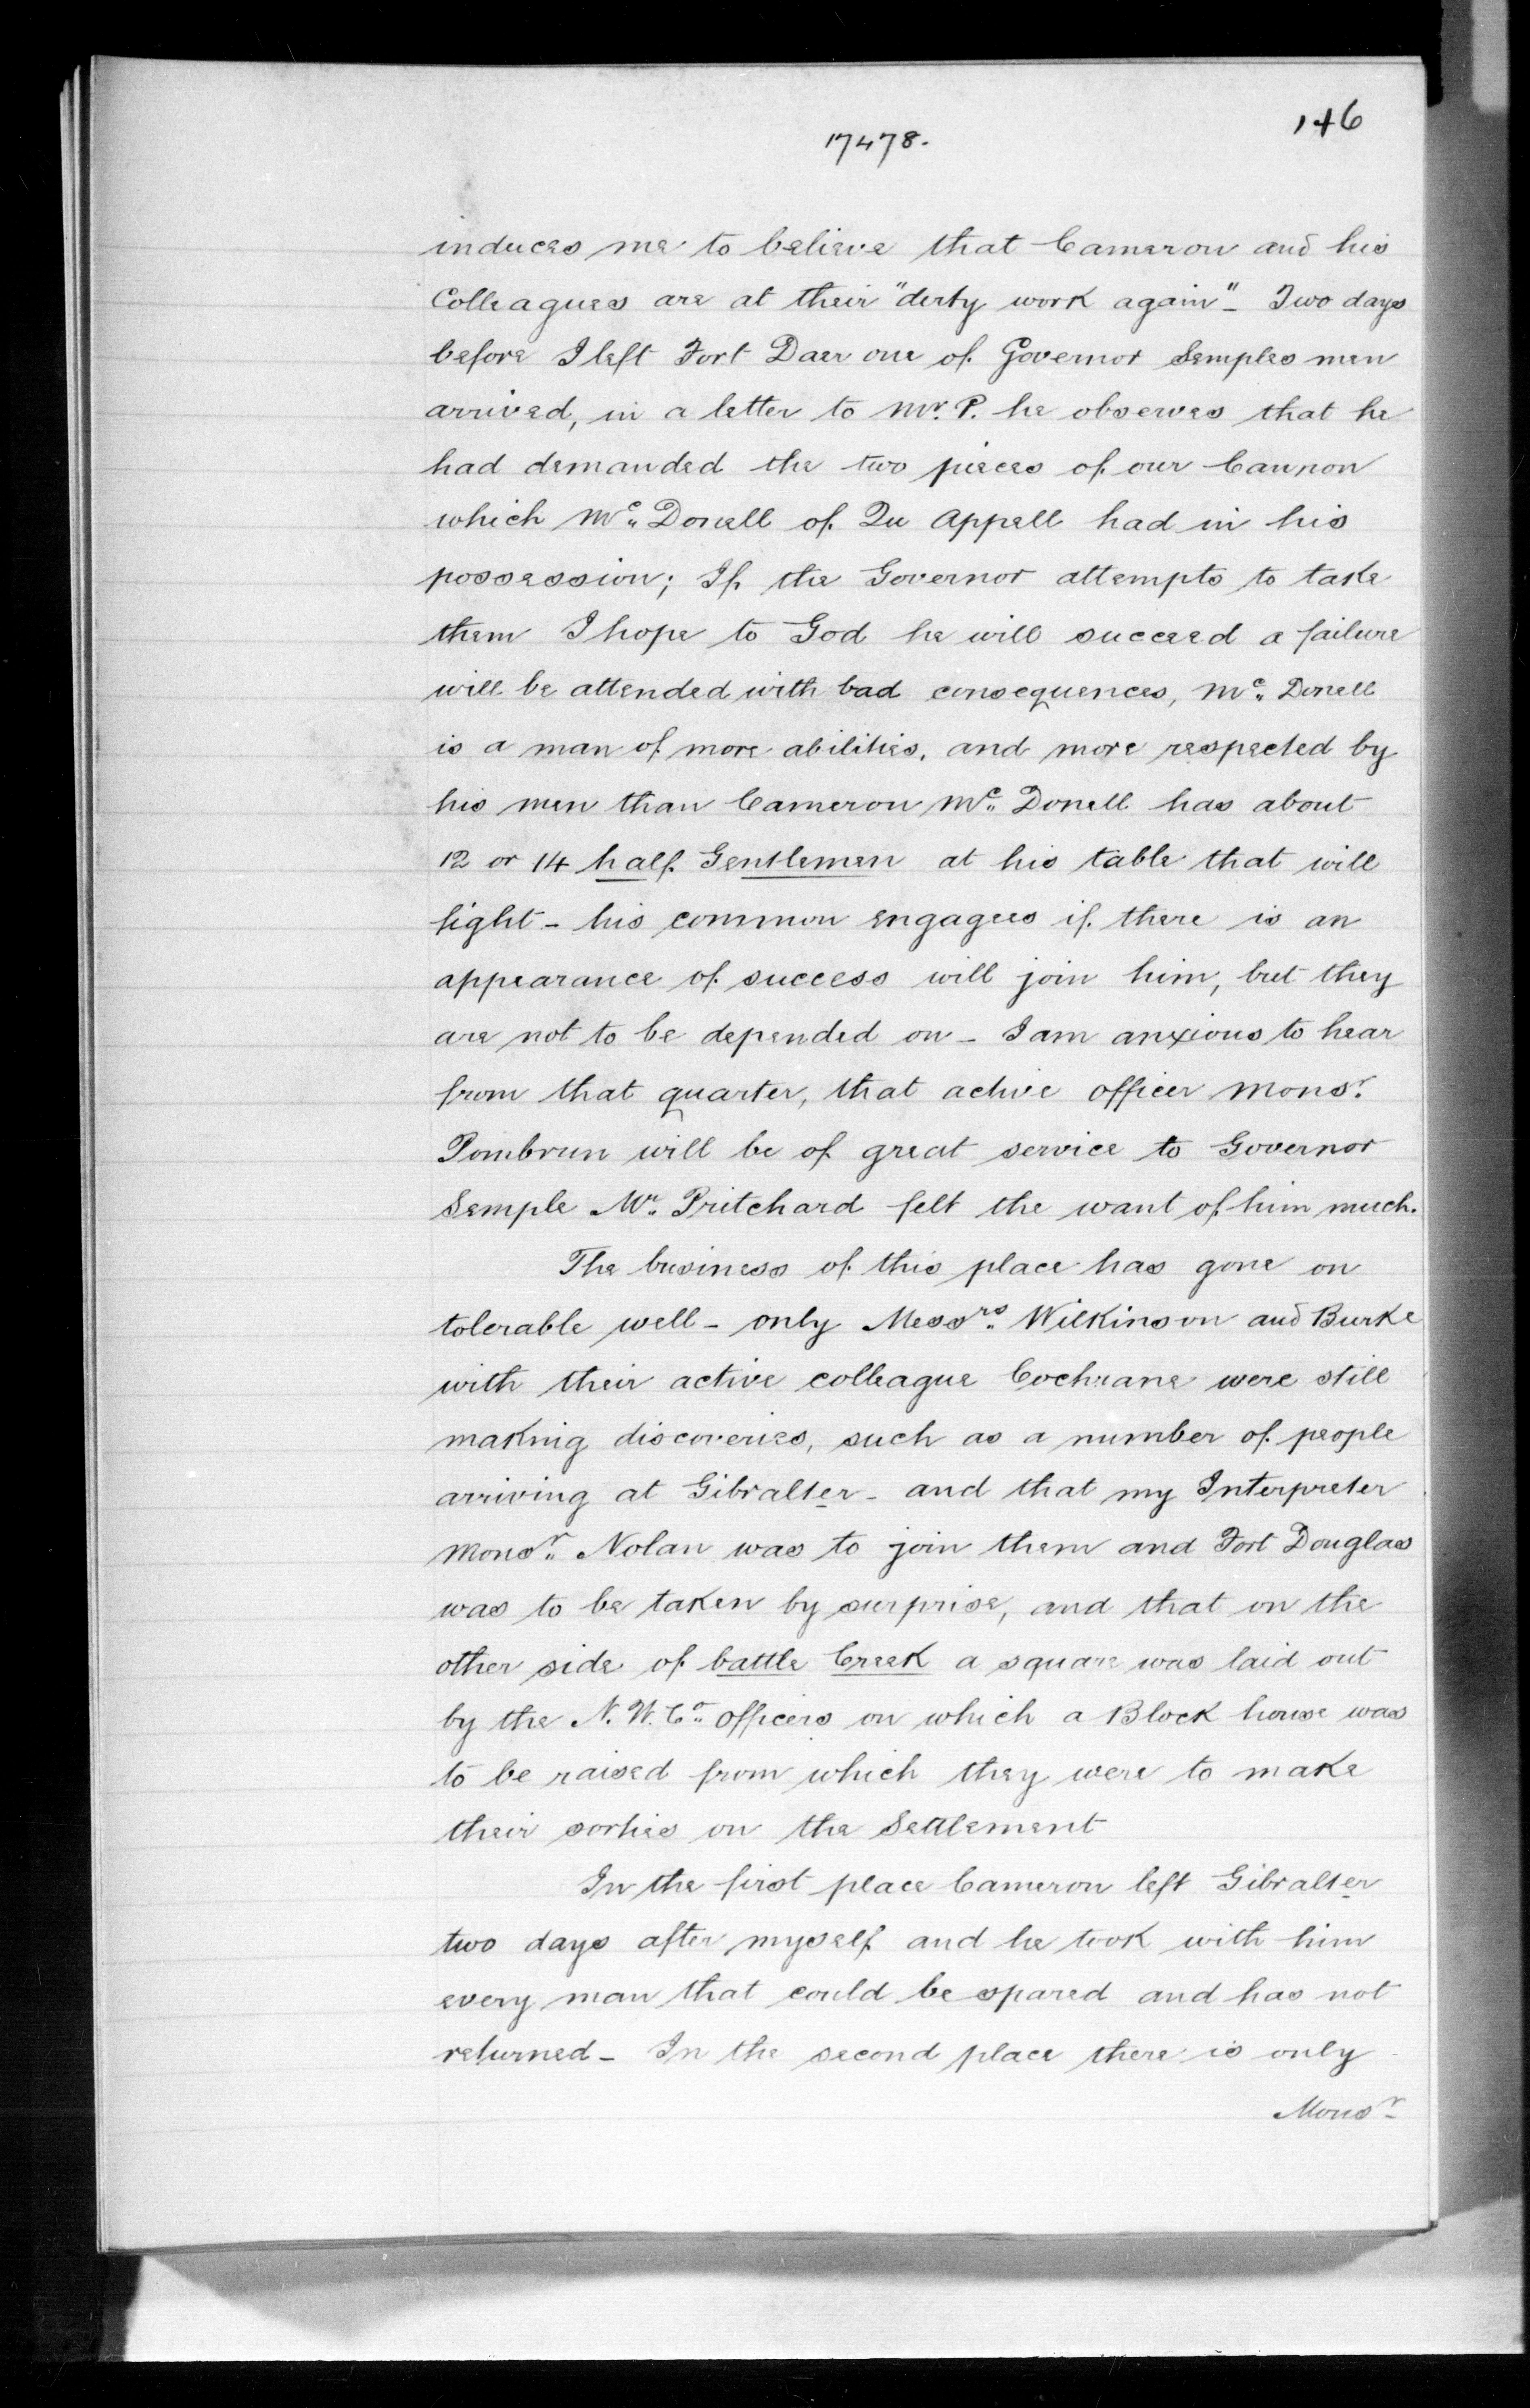 146
17478.
induces me to believe that Cameron and his
Colleagues are at their "derty work again" - Two days
before I left Fort Daer one of Governor Semples men
arrived, in a letter to Mr. P. he observes that he
had demanded the two pieces of our Cannon
which Mc Donell of Qu Appell had in his
possession; If the Governor attempts to take
them I hope to God he will succeed a failure
will be attended with bad consequences, Mc Donell
is a man of more abilities, and more respected by
his men than Cameron Mc Donell has about
12 or 14 half Gentlemen at his table that will
fight - his common engagees if there is an
appearance of success will join him, but they
are not to be depended on - I am anxious to hear
from that quarter, that active officer Monsr.
Pombrun will be of great service to Governor
Semple Mr. Pritchard felt the want of him much.
The business of this place has gone on
tolerable well - only Messrs. Wilkinson and Burke
with their active colleague Cochrane were still
making discoveries, such as a number of people
arriving at Gibralter - and that my Interpreter
Monsr. Nolan was to join them and Fort Douglas
was to be taken by surprise, and that on the
other side of battle Creek a square was laid out
by the N. W. Co. officers on which a Block house was
to be raised from which they were to make
their sorties on the Settlement
In the first place Cameron left Gibralter
two days after myself and he took with him
every man that could be spared and has not
returned - In the second place there is only
Monsr